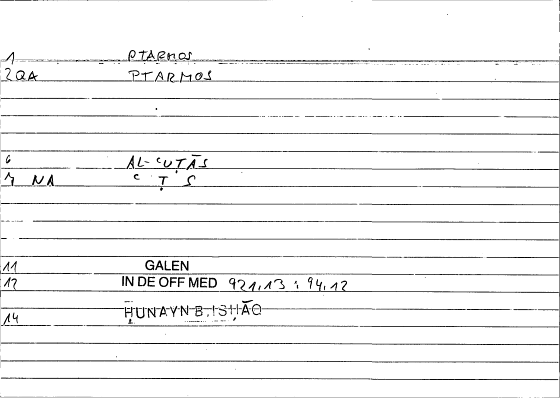 1 PTARMOS
2 QA PTARMOS
6 AL-ʿUṬĀS
7 NA ʿ Ṭ S
11 GALEN
12 IN DE OFF MED 921,13 : 94,12
14 ḤUNAYN B. ISḤĀQ